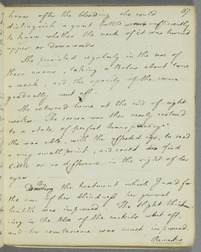 87
hours after the bleeding she could
distinguish a quart bottle sufficiently
to know whether the neck of it was turned
upper or downwards
She persisted regularly in the use of
these means, taking a Bolus about twice
a week, and the opacity of the cornea
gradually went off.
She returned home at the end of eight
weeks. The cornea was then nearly restored
to a state of perfect transparency.
She was able, with the affected eye, to read
a very small print, and could find
little or no difference in the sight of her
eyes
During the treatment which I used for
the cure of her blindness her general
health was improved. The slight thicken
ing in the Alae of the nostrils went off,
and her countenance was much improved.
Remarks